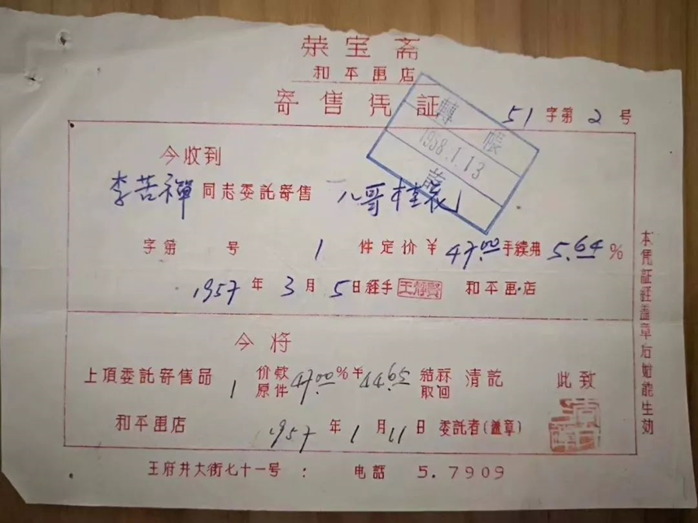 荣宝斋
和平画店
寄售凭証
51字第2号
轉賬
1958.1.13
今收到
李苦禅同志委託寄售 八哥
字第 号 1 件定价¥47.00手续费5.64%
1957年3月5日经手 和平画店
本凭証经盖章后始能生効
今将
上項委託寄售品 1 价款原件 47.00%¥44.65 结清訖取回 此致
和平画店 1957年1月11日 委託者(盖章)
王府井大街七十一号 : 电話 5.7909